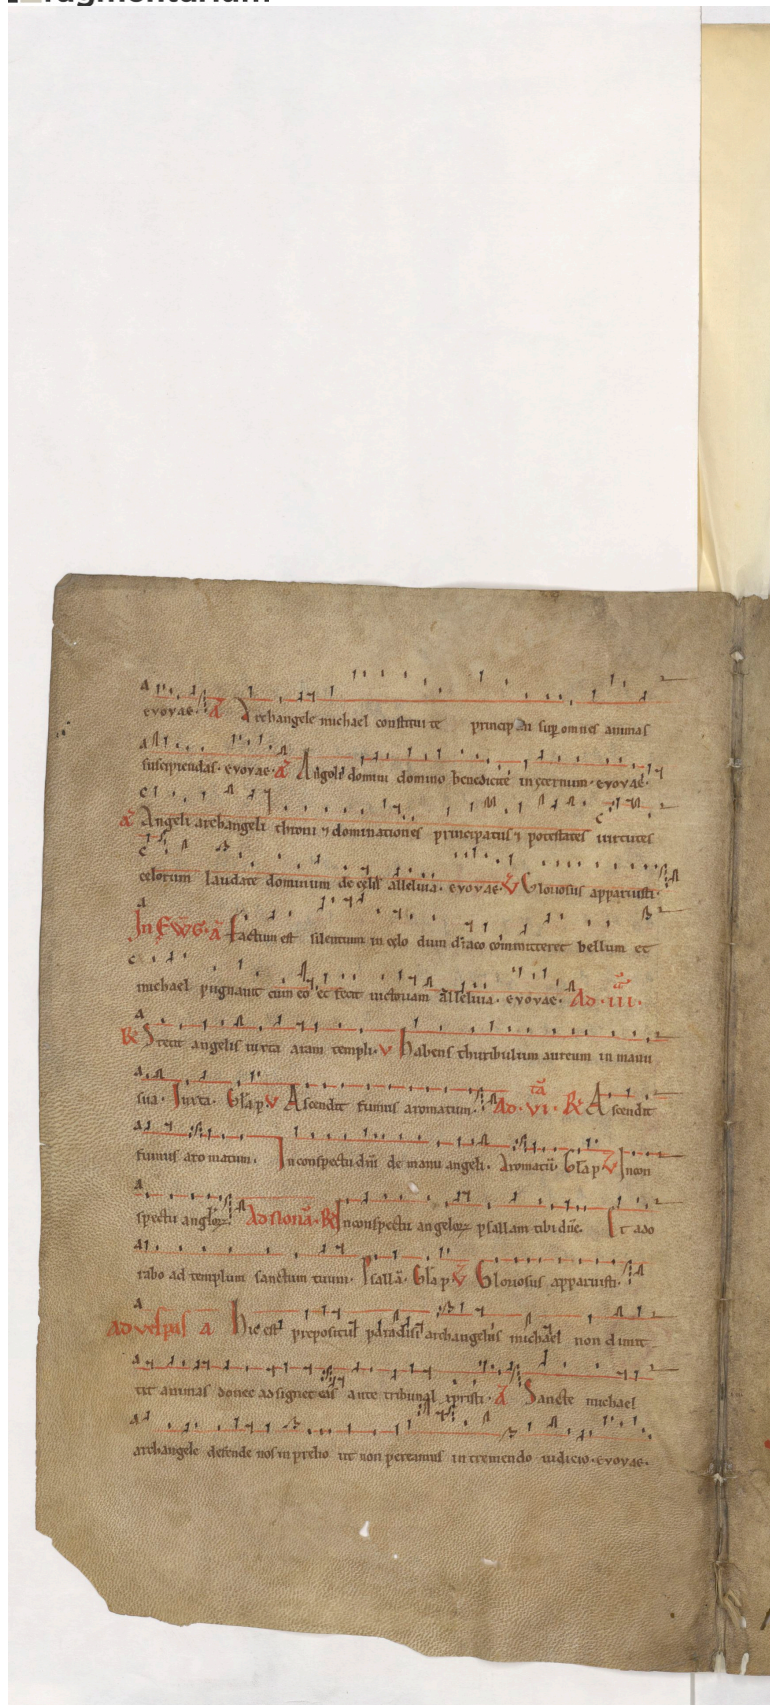 fragmentarium
evovae· A Archangele michael constitui te principem sup omnes animas
suscipiendas· evovae· A Angeli domini domino benedicite in eternum· evovae·
A Angeli archangeli throni & dominationes principatus & potestates virtutes
celorum laudate dominum de celis alleluia· evovae· V Gloriosus apparuisti·
In EWG· A Factum est silentium in celo dum draco committeret bellum et
michael pugnavit cum eo et fecit victoriam alleluia· evovae· Ad·III·
R Stetit angelus iuxta aram templi· V habens thuribulum aureum in manu
sua· Iuxta· Gla p V Ascendit fumus aromatum· Ad·VI· R Ascendit
fumus aromatum· In conspectu dni de manu angeli· Aromatu· Gla p V In con
spectu anglor Ad nona R In conspectu angelor psallam tibi dne· Et ado
rabo ad templum sanctum tuum· Psalla· Gla p V Gloriosus apparuisti·
Ad vespas A hic est prepositus paradisi archangelus michael non dimit
tit animas donec adsignet eas ante tribunal xpristi· A Sancte michael
archangele defende nos in prelio ut non pereamus in tremendo iudicio· evovae·